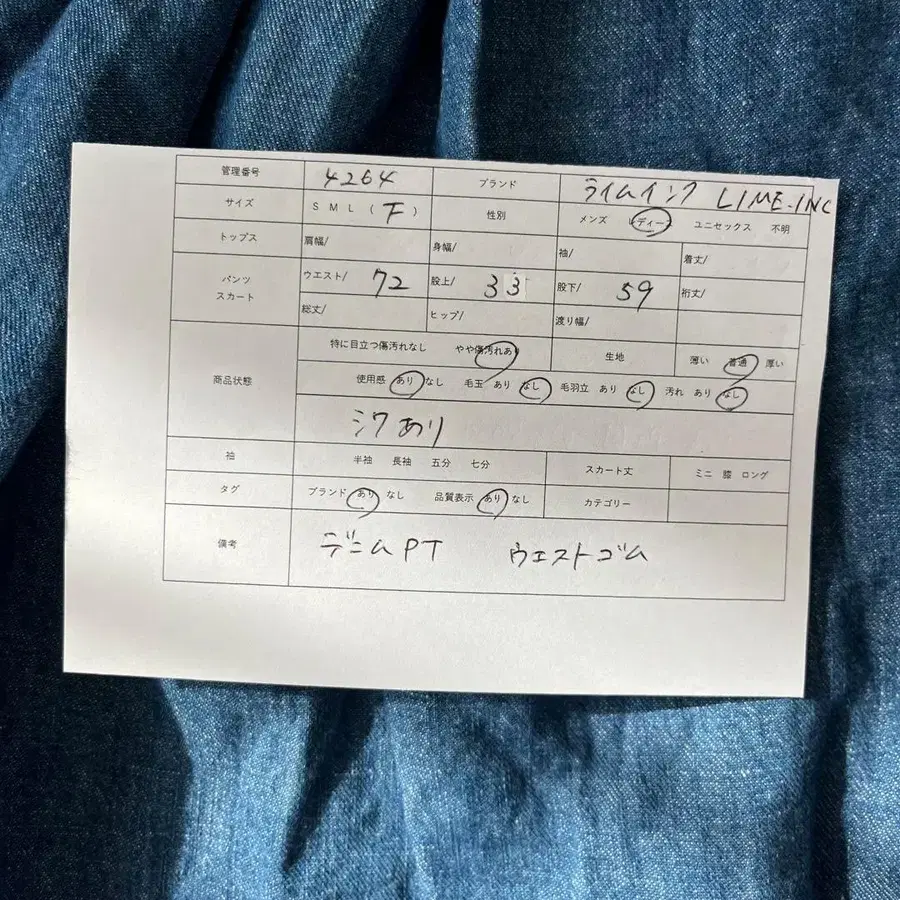 管理番号 4264 ブランド ライムインク LIME.INC
サイズ S M L ( F ) 性別 メンズ レディース ユニセックス 不明
トップス 肩幅/ 身幅/ 袖/ 着丈/
パンツ スカート ウエスト/ 72 股上/ 33 股下/ 59 裄丈/
総丈/ ヒップ/ 渡り幅/
商品状態 特に目立つ傷汚れなし やや傷汚れあり 生地 薄い 普通 厚い
使用感 あり なし 毛玉 あり なし 毛羽立 あり なし 汚れ あり なし
シワあり
袖 半袖 長袖 五分 七分 スカート丈 ミニ 膝 ロング
タグ ブランド あり なし 品質表示 あり なし カテゴリー
備考 デニムPT ウエストゴム